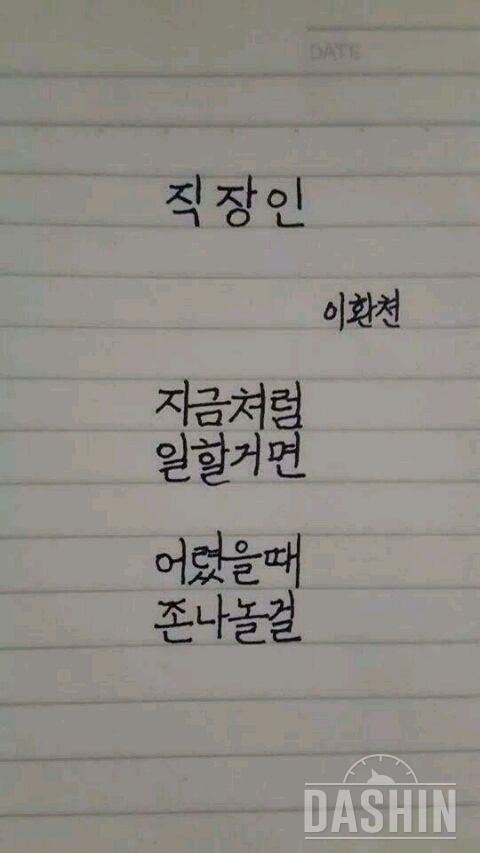 DATE
직장인
이환천
지금처럼
일할거면
어렸을때
존나놀걸
DASHIN